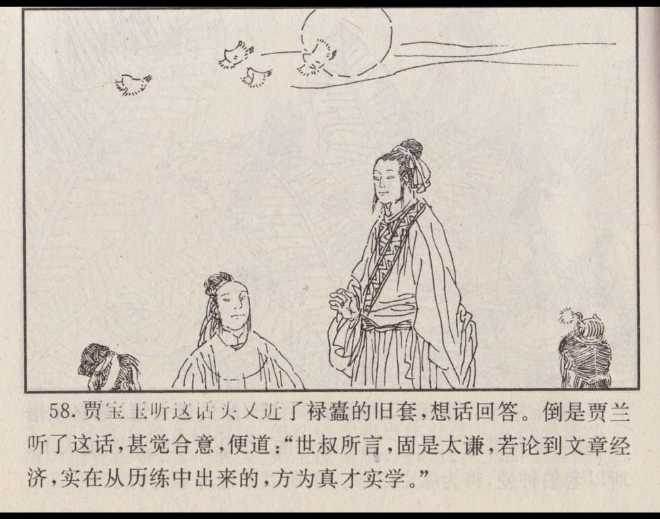 58. 贾宝玉听这话头又近了禄蠹的旧套,想话回答。倒是贾兰
听了这话,甚觉合意,便道:“世叔所言,固是太谦,若论到文章经
济,实在从历练中出来的,方为真才实学。”